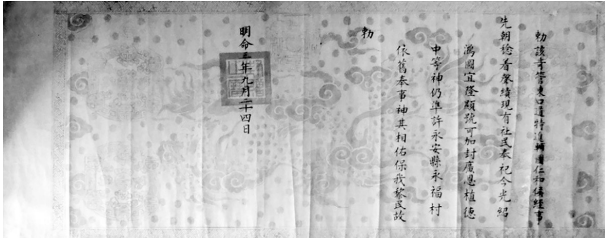 勅該奇管東口道特進輔國仁和侯經事
先朝稔着聲績現有社民奉祀今光紹
鴻圖宜隆顯號可加封廣恩植德
中等神仍準許永安縣永福村
依舊奉事神其相佑保我黎民故
勅
明命三年九月二十四日